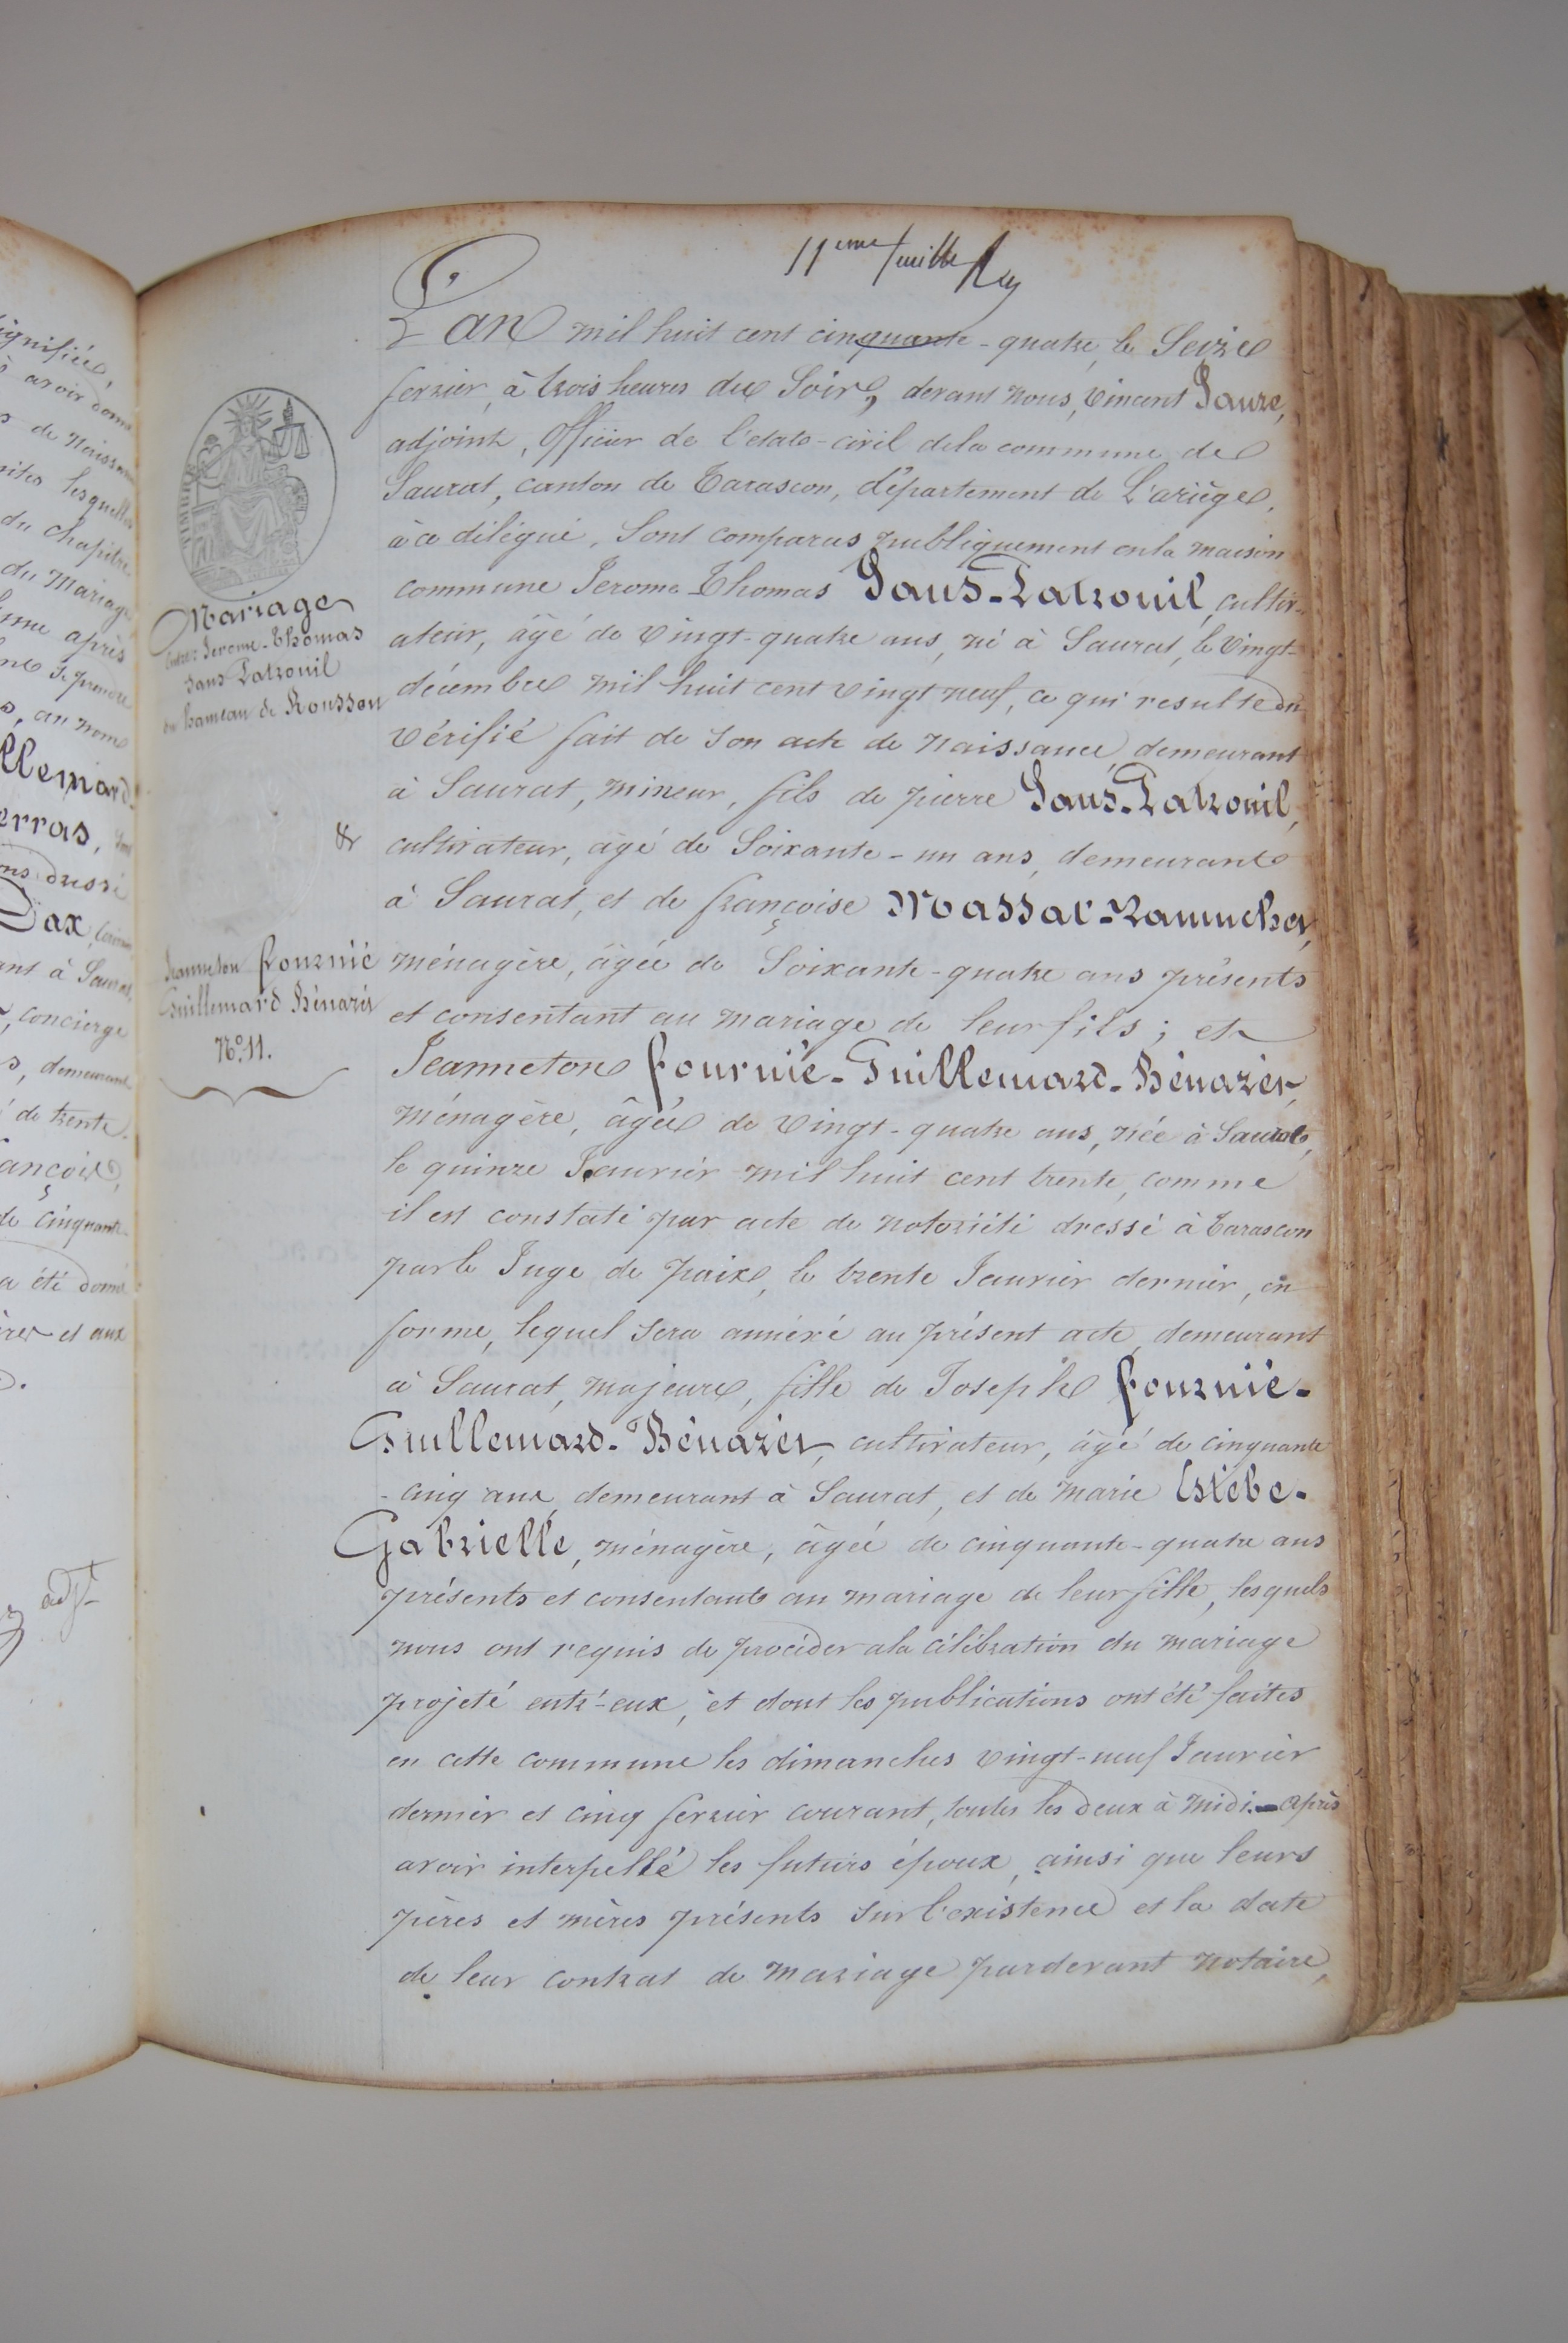 ignifiée,
avoir donn
de Naissan
lesquelles
du chapitre
du Mariage
après
Se prendre
au nom
llemard
erras,
dussi
Dax
ant à Saurat,
concierge
demeurant
de trente-
ançois,
de cinquante-
a été donné
et aux
adjt
11eme feuille
Mariage
entre Jerome-Thomas
Sans Latrouil
du hameau de Roussou
&
Jeanneton fournié
Guillemard Bénazet
No. 11.
L'an mil huit cent cinquante-quatre, le Seize
fevrier, à trois heures du Soir, devant nous, Vincent Saure,
adjoint, Officier de l'etat-civil dela commune de
Saurat, canton de Tarascon, département de L'ariège,
à ce délégué, Sont comparus publiquement en la maison
commune Jerome-Thomas Sans-Latrouil, cultiv-
ateur, âgé de Vingt-quatre ans, né à Saurat, le Vingt-
décembre mil huit cent vingt neuf, ce qui resulte du
Vérifié fait de son acte de Naissance, demeurant
à Saurat, mineur, fils de pierre Sans-Latrouil,
cultivateur, âgé de Soixante-un ans, demeurant
à Saurat, et de françoise Massat-Ramucher,
ménagère, âgée de Soixante-quatre ans présents
et consentant au mariage de leur fils ; et
Jeanneton fournié-Guillemard-Bénazet,
Ménagère, âgée de Vingt-quatre ans, née à Saurat,
le quinze Janvier mil huit cent trente, comme
il est constaté par acte de notoriété dressé à Tarascon
par le Juge de paix, le trente Janvier dernier, en
forme, lequel sera annéxé au présent acte, demeurant
à Saurat, majeure, fille de Joseph fournié-
Guillemard-Bénazet, cultivateur, âgé de cinquante
-cinq ans, demeurant à Saurat, et de marie Estèbe-
Gabrielle, ménagère, âgée de cinquante-quatre ans
présents et consentants au mariage de leur fille, lesquels
nous ont requis de procéder a la célébration du mariage
projeté entr'-eux, et dont les publications ont été faites
en cette commune les dimanches vingt-neuf Janvier
dernier et cinq fevrier courant, toutes les deux à midi.- après
avoir interpellé les futurs époux, ainsi que leurs
pères et mères présents sur l'existence et la date
de leur contrat de mariage pardevant notaire,